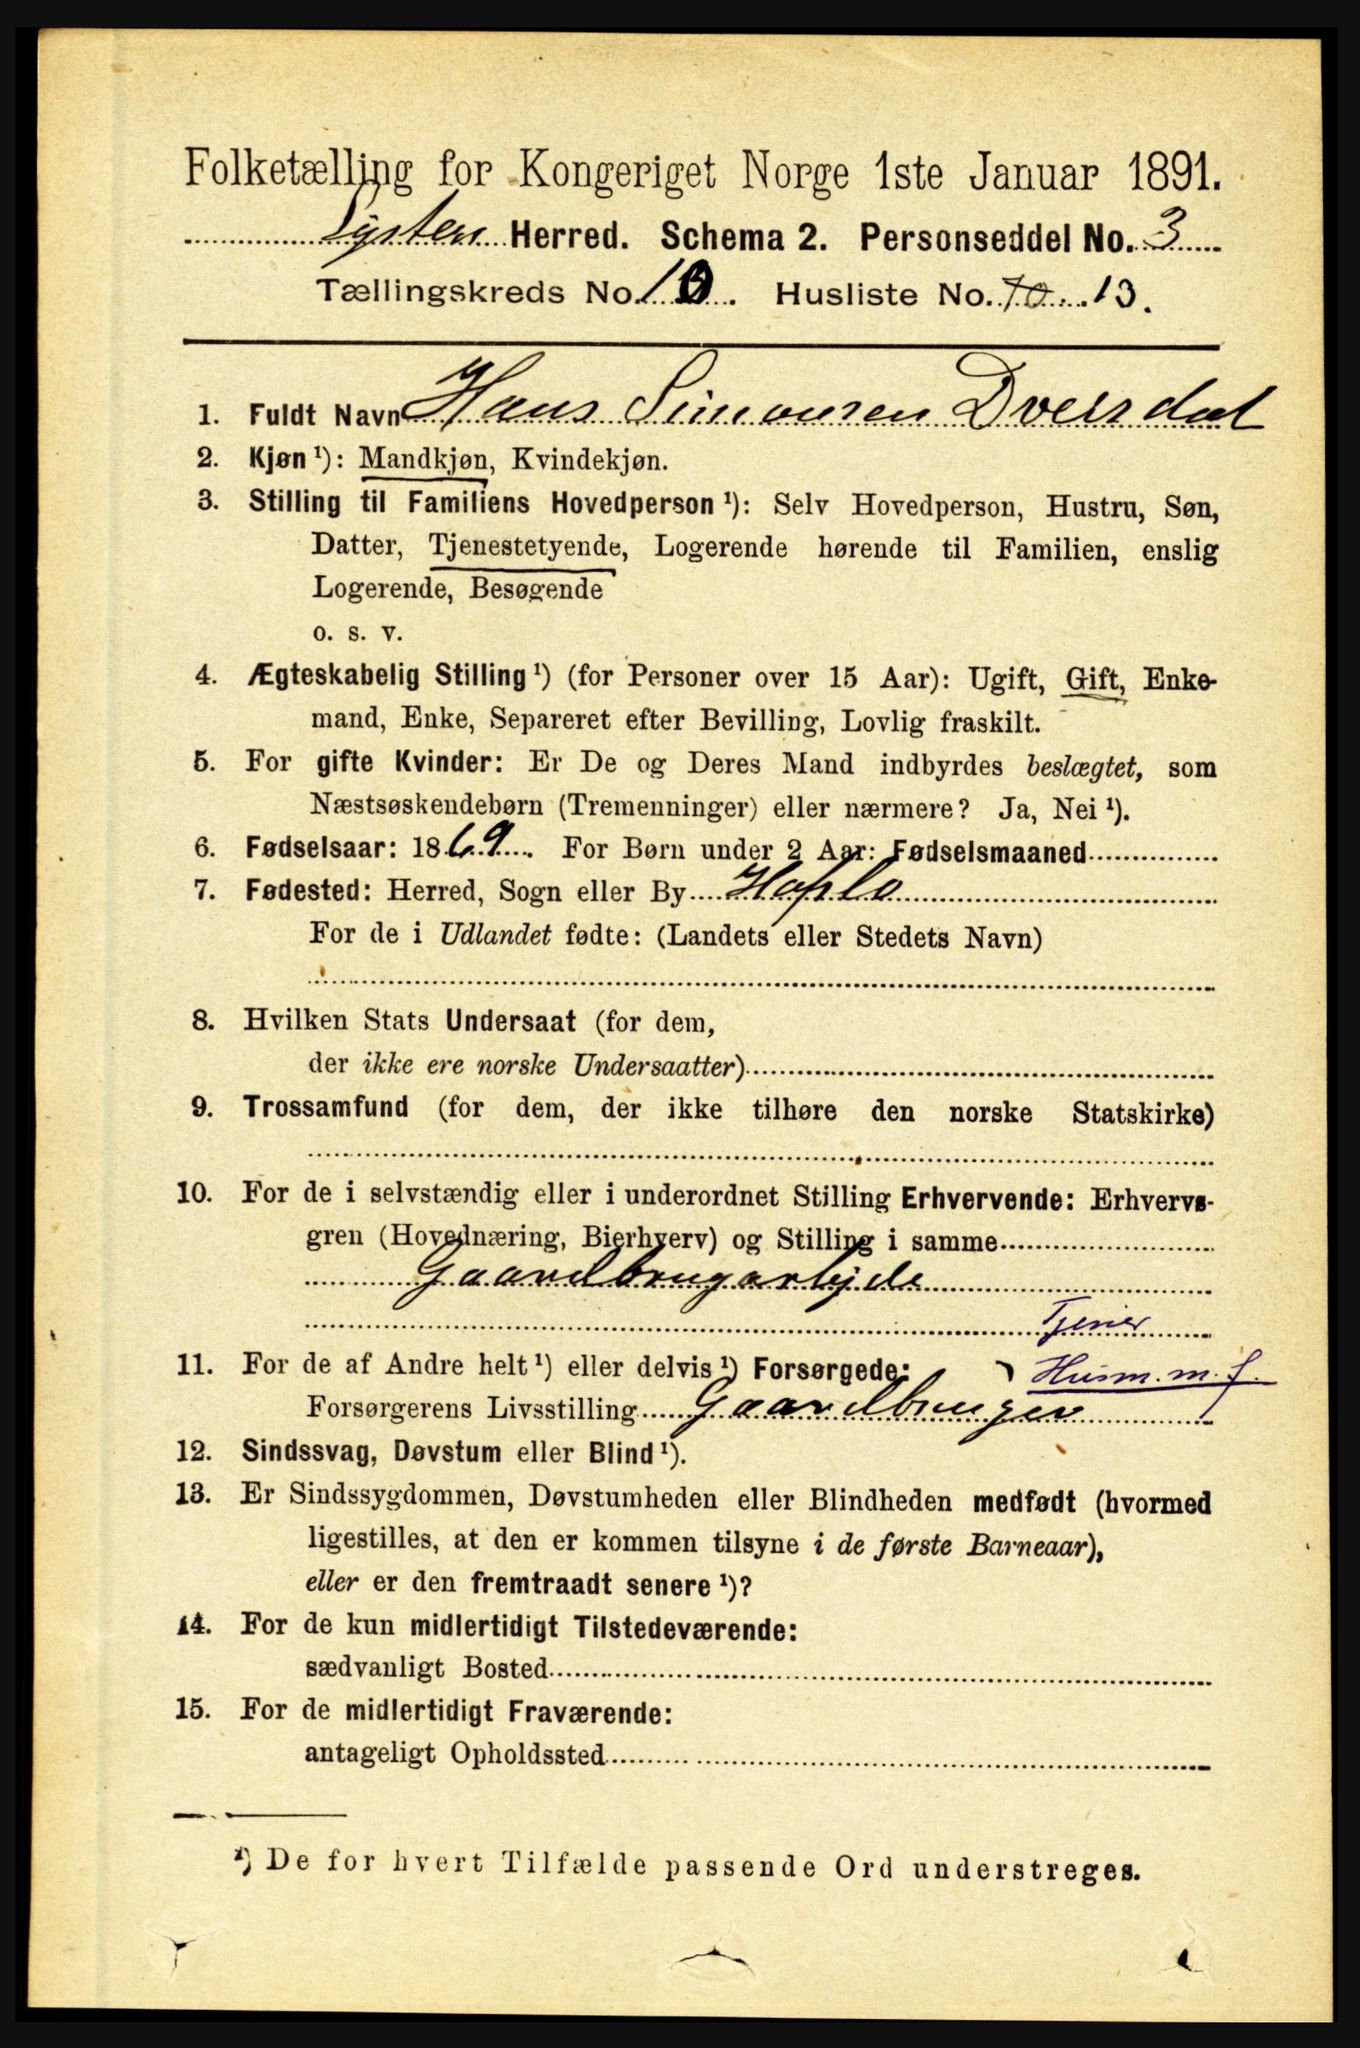 Folketælling for Kongeriget Norge 1ste Januar 1891.
Lyster Herred. Schema 2. Personseddel No. 3
Tællingskreds No. 10. Husliste No. 70 13.
1. Fuldt Navn Hans Simonsen Dversdal
2. Kjøn ¹): Mandkjøn, Kvindekjøn.
3. Stilling til Familiens Hovedperson ¹): Selv Hovedperson, Hustru, Søn,
Datter, Tjenestetyende, Logerende hørende til Familien, enslig
Logerende, Besøgende
o. s. v.
4. Ægteskabelig Stilling ¹) (for Personer over 15 Aar): Ugift, Gift, Enke-
mand, Enke, Separeret efter Bevilling, Lovlig fraskilt.
5. For gifte Kvinder: Er De og Deres Mand indbyrdes beslægtet, som
Næstsøskendebørn (Tremenninger) eller nærmere? Ja, Nei ¹).
6. Fødselsaar: 1869. For Børn under 2 Aar: Fødselsmaaned
7. Fødested: Herred, Sogn eller By Hafslo
For de i Udlandet fødte: (Landets eller Stedets Navn)
8. Hvilken Stats Undersaat (for dem,
der ikke ere norske Undersaatter)
9. Trossamfund (for dem, der ikke tilhøre den norske Statskirke)
10. For de i selvstændig eller i underordnet Stilling Erhvervende: Erhvervs-
gren (Hovednæring, Bierhverv) og Stilling i samme
Gaardbrugarbejde
Tjener
11. For de af Andre helt ¹) eller delvis ¹) Forsørgede: Husm. m. f.
Forsørgerens Livsstilling Gaardbruger
12. Sindssvag, Døvstum eller Blind ¹).
13. Er Sindssygdommen, Døvstumheden eller Blindheden medfødt (hvormed
ligestilles, at den er kommen tilsyne i de første Barneaar),
eller er den fremtraadt senere ¹)?
14. For de kun midlertidigt Tilstedeværende:
sædvanligt Bosted
15. For de midlertidigt Fraværende:
antageligt Opholdssted
¹) De for hvert Tilfælde passende Ord understreges.